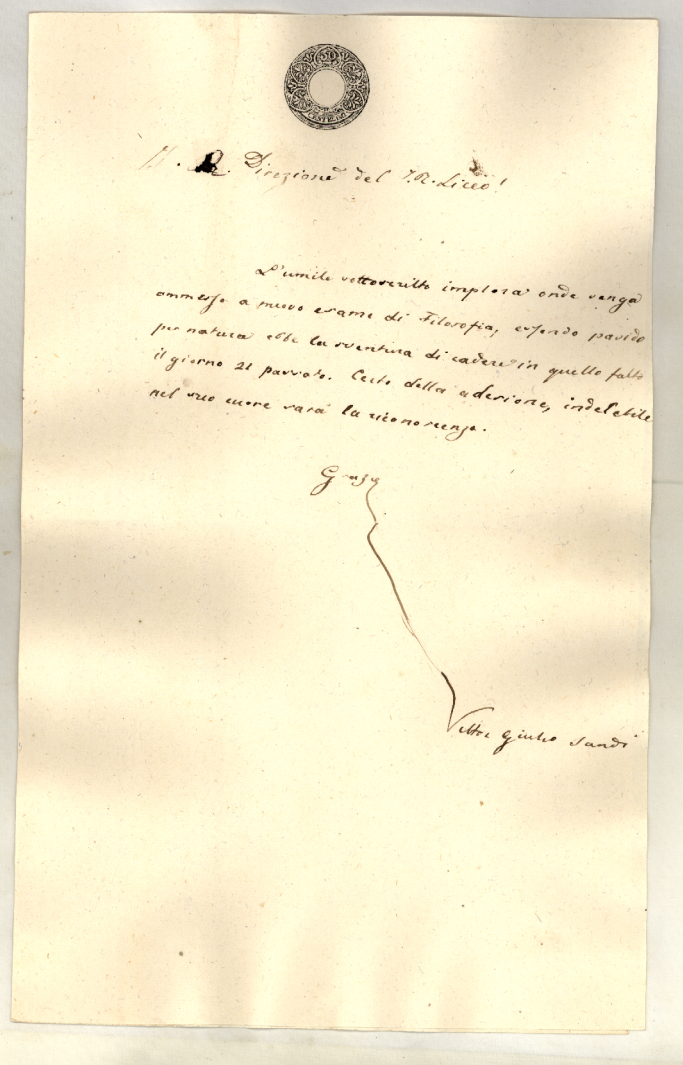 I. R. Direzione del I. R. Liceo!
L'umile sottoscritto implora onde venga
ammesso a nuovo esame di Filosofia, essendo pavido
per natura ebbe la sventura di cadere in quello fatto
il giorno 21 passato. Certo della adesione, indelebile
nel suo cuore sarà la riconoscenza.
Giulio Sandi